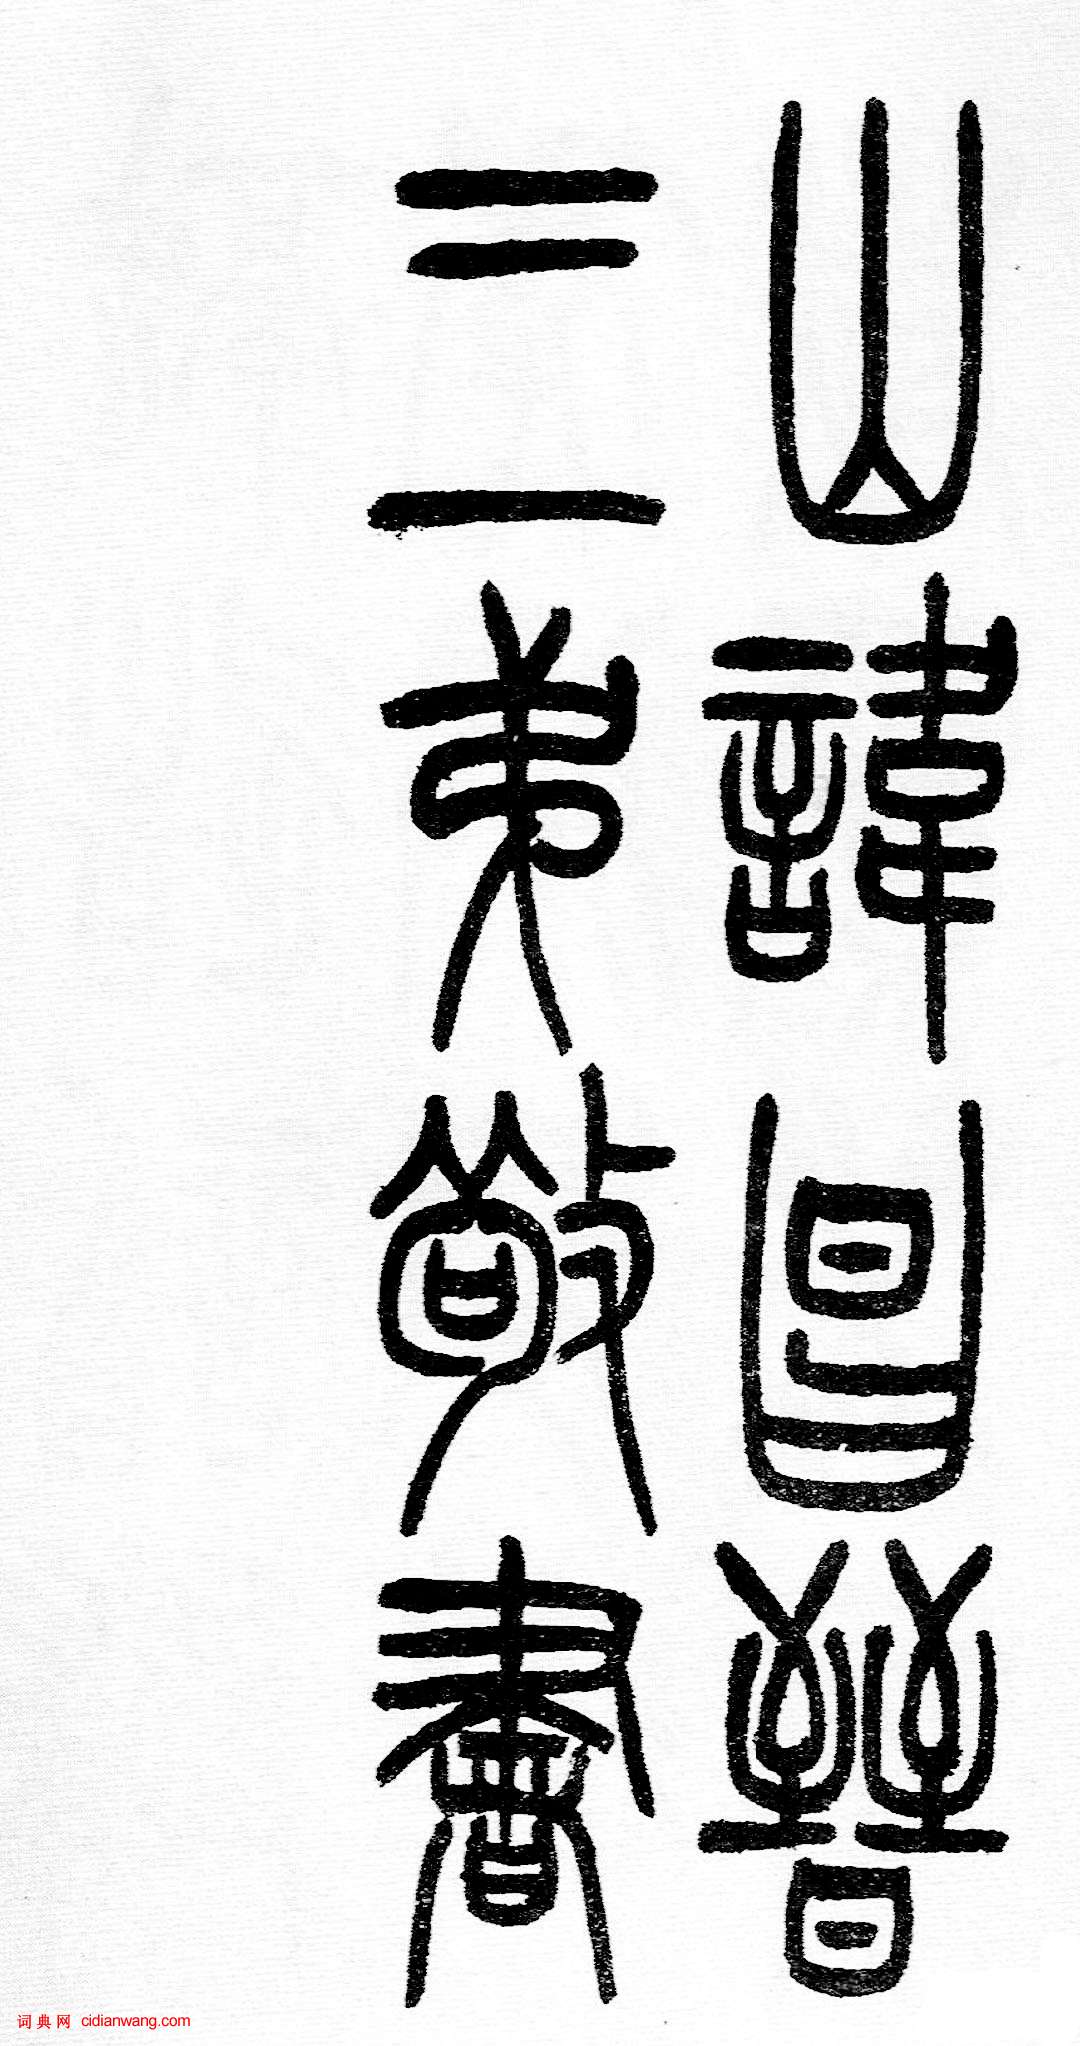 山諱昌晉
三弟敬書
词典网 cidianwang.com